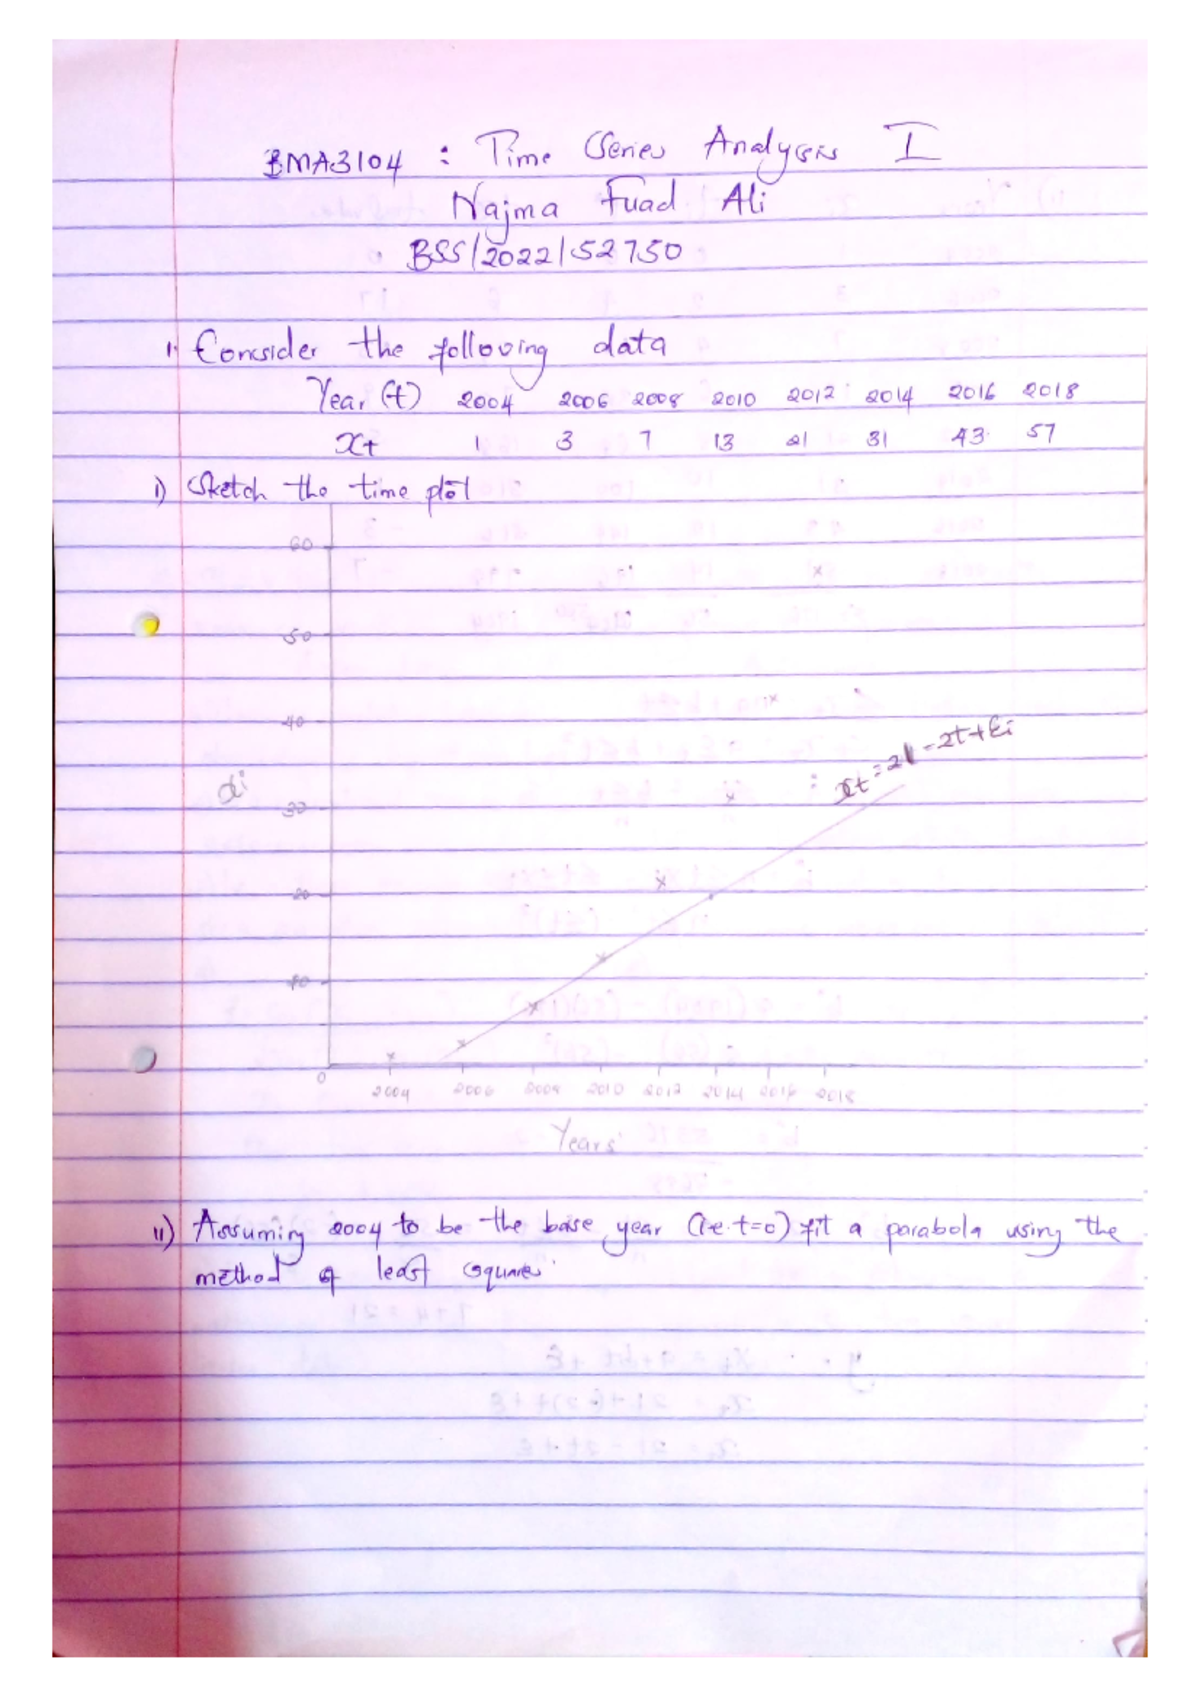 BMA3104 : Time Series Analysis I
Najma Fuad Ali
BSS/2022/52750
1. Consider the following data
Year (t) 2004 2006 2008 2010 2012 2014 2016 2018
xt 1 3 7 13 21 31 43 57
i) Sketch the time plot
60
50
40
xt = 21 - 2t + Ei
xi
30
20
10
0
2004 2006 2008 2010 2012 2014 2016 2018
Years
ii) Assuming 2004 to be the base year (i.e. t=0) fit a parabola using the
method of least squares.